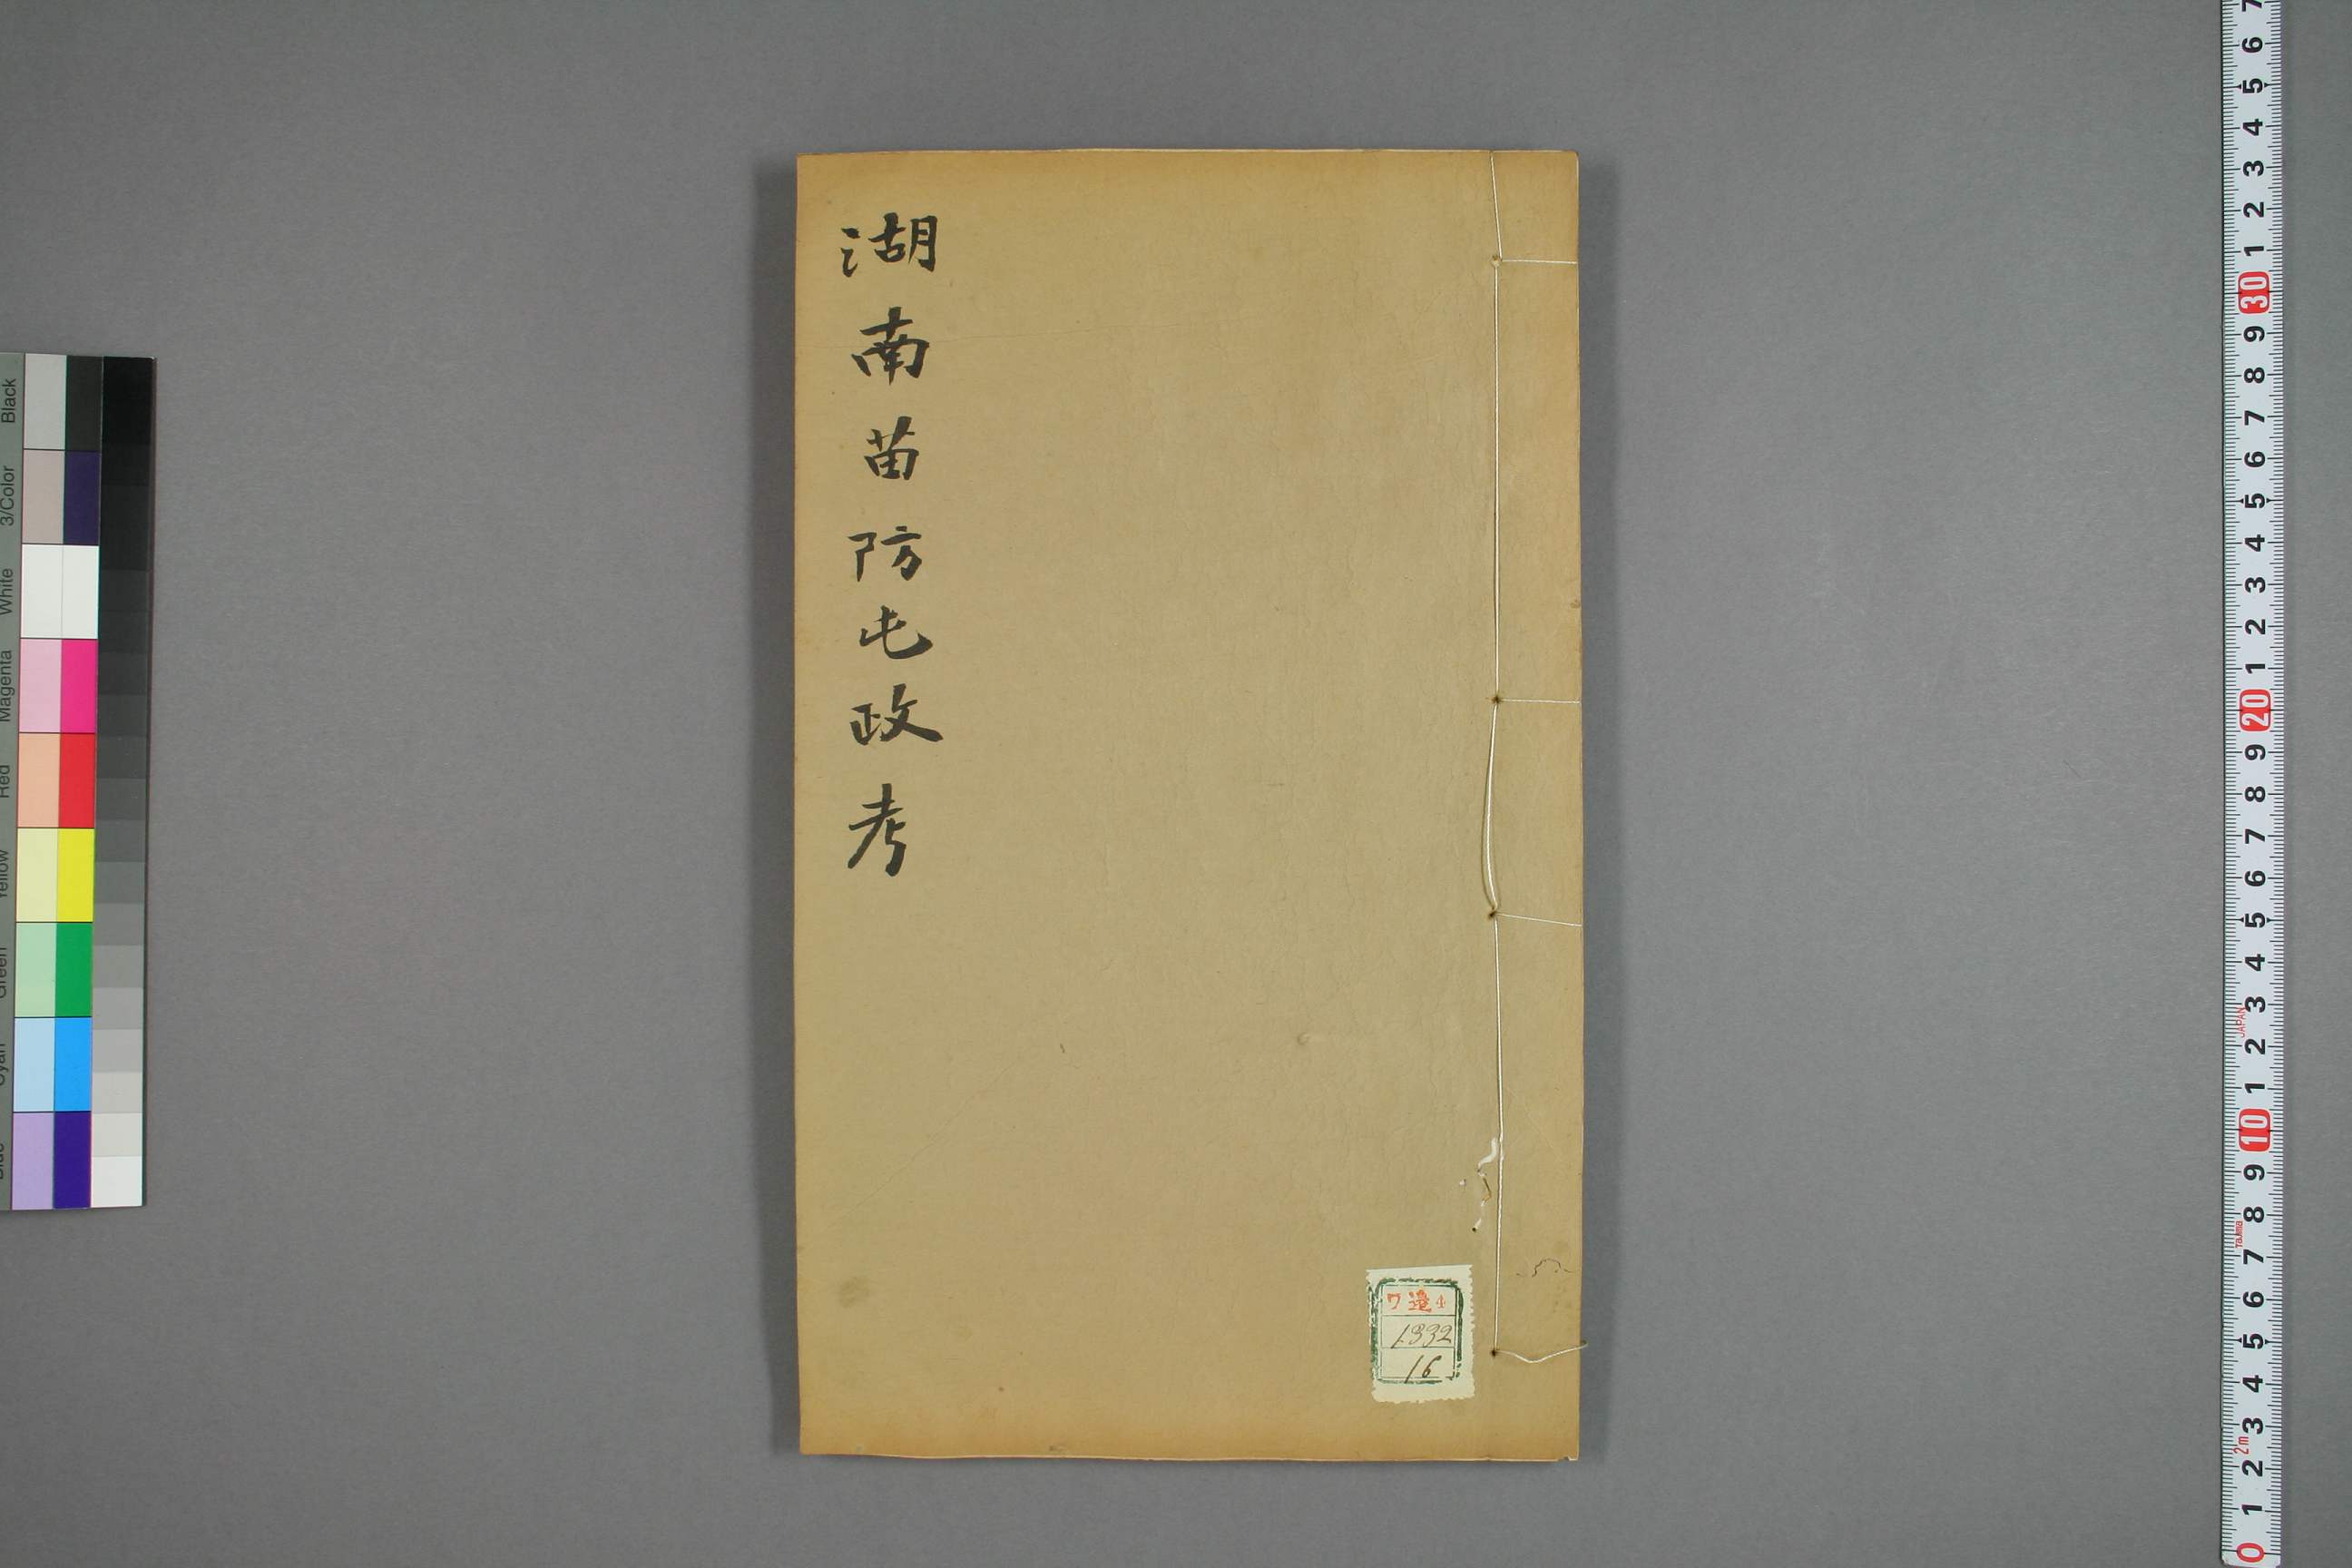 湖南苗防屯政考
ワ遣4
1332
16
Black
3/Color
White
Magenta
Red
Yellow
Green
Cyan
7
6
5
4
3
2
1
30
9
8
7
6
5
4
3
2
1
20
9
8
7
6
5
4
3
JAPAN
2
1
10
9
8
Tajima
7
6
5
4
3
2m
2
1
0